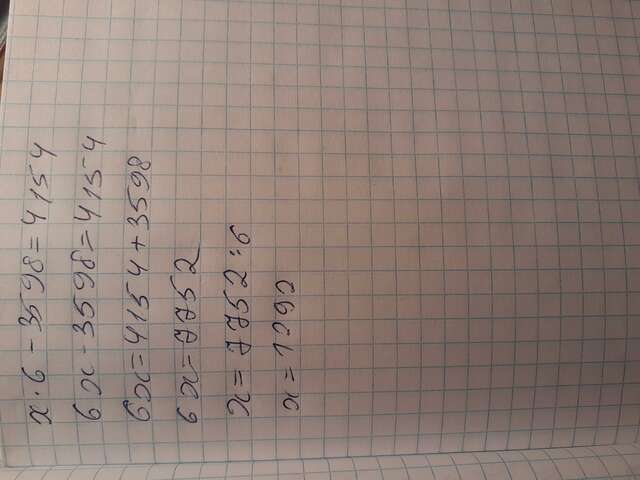 x·6-3598=4154
6x-3598=4154
6x=4154+3598
6x=7752
x=7752:6
x=1292